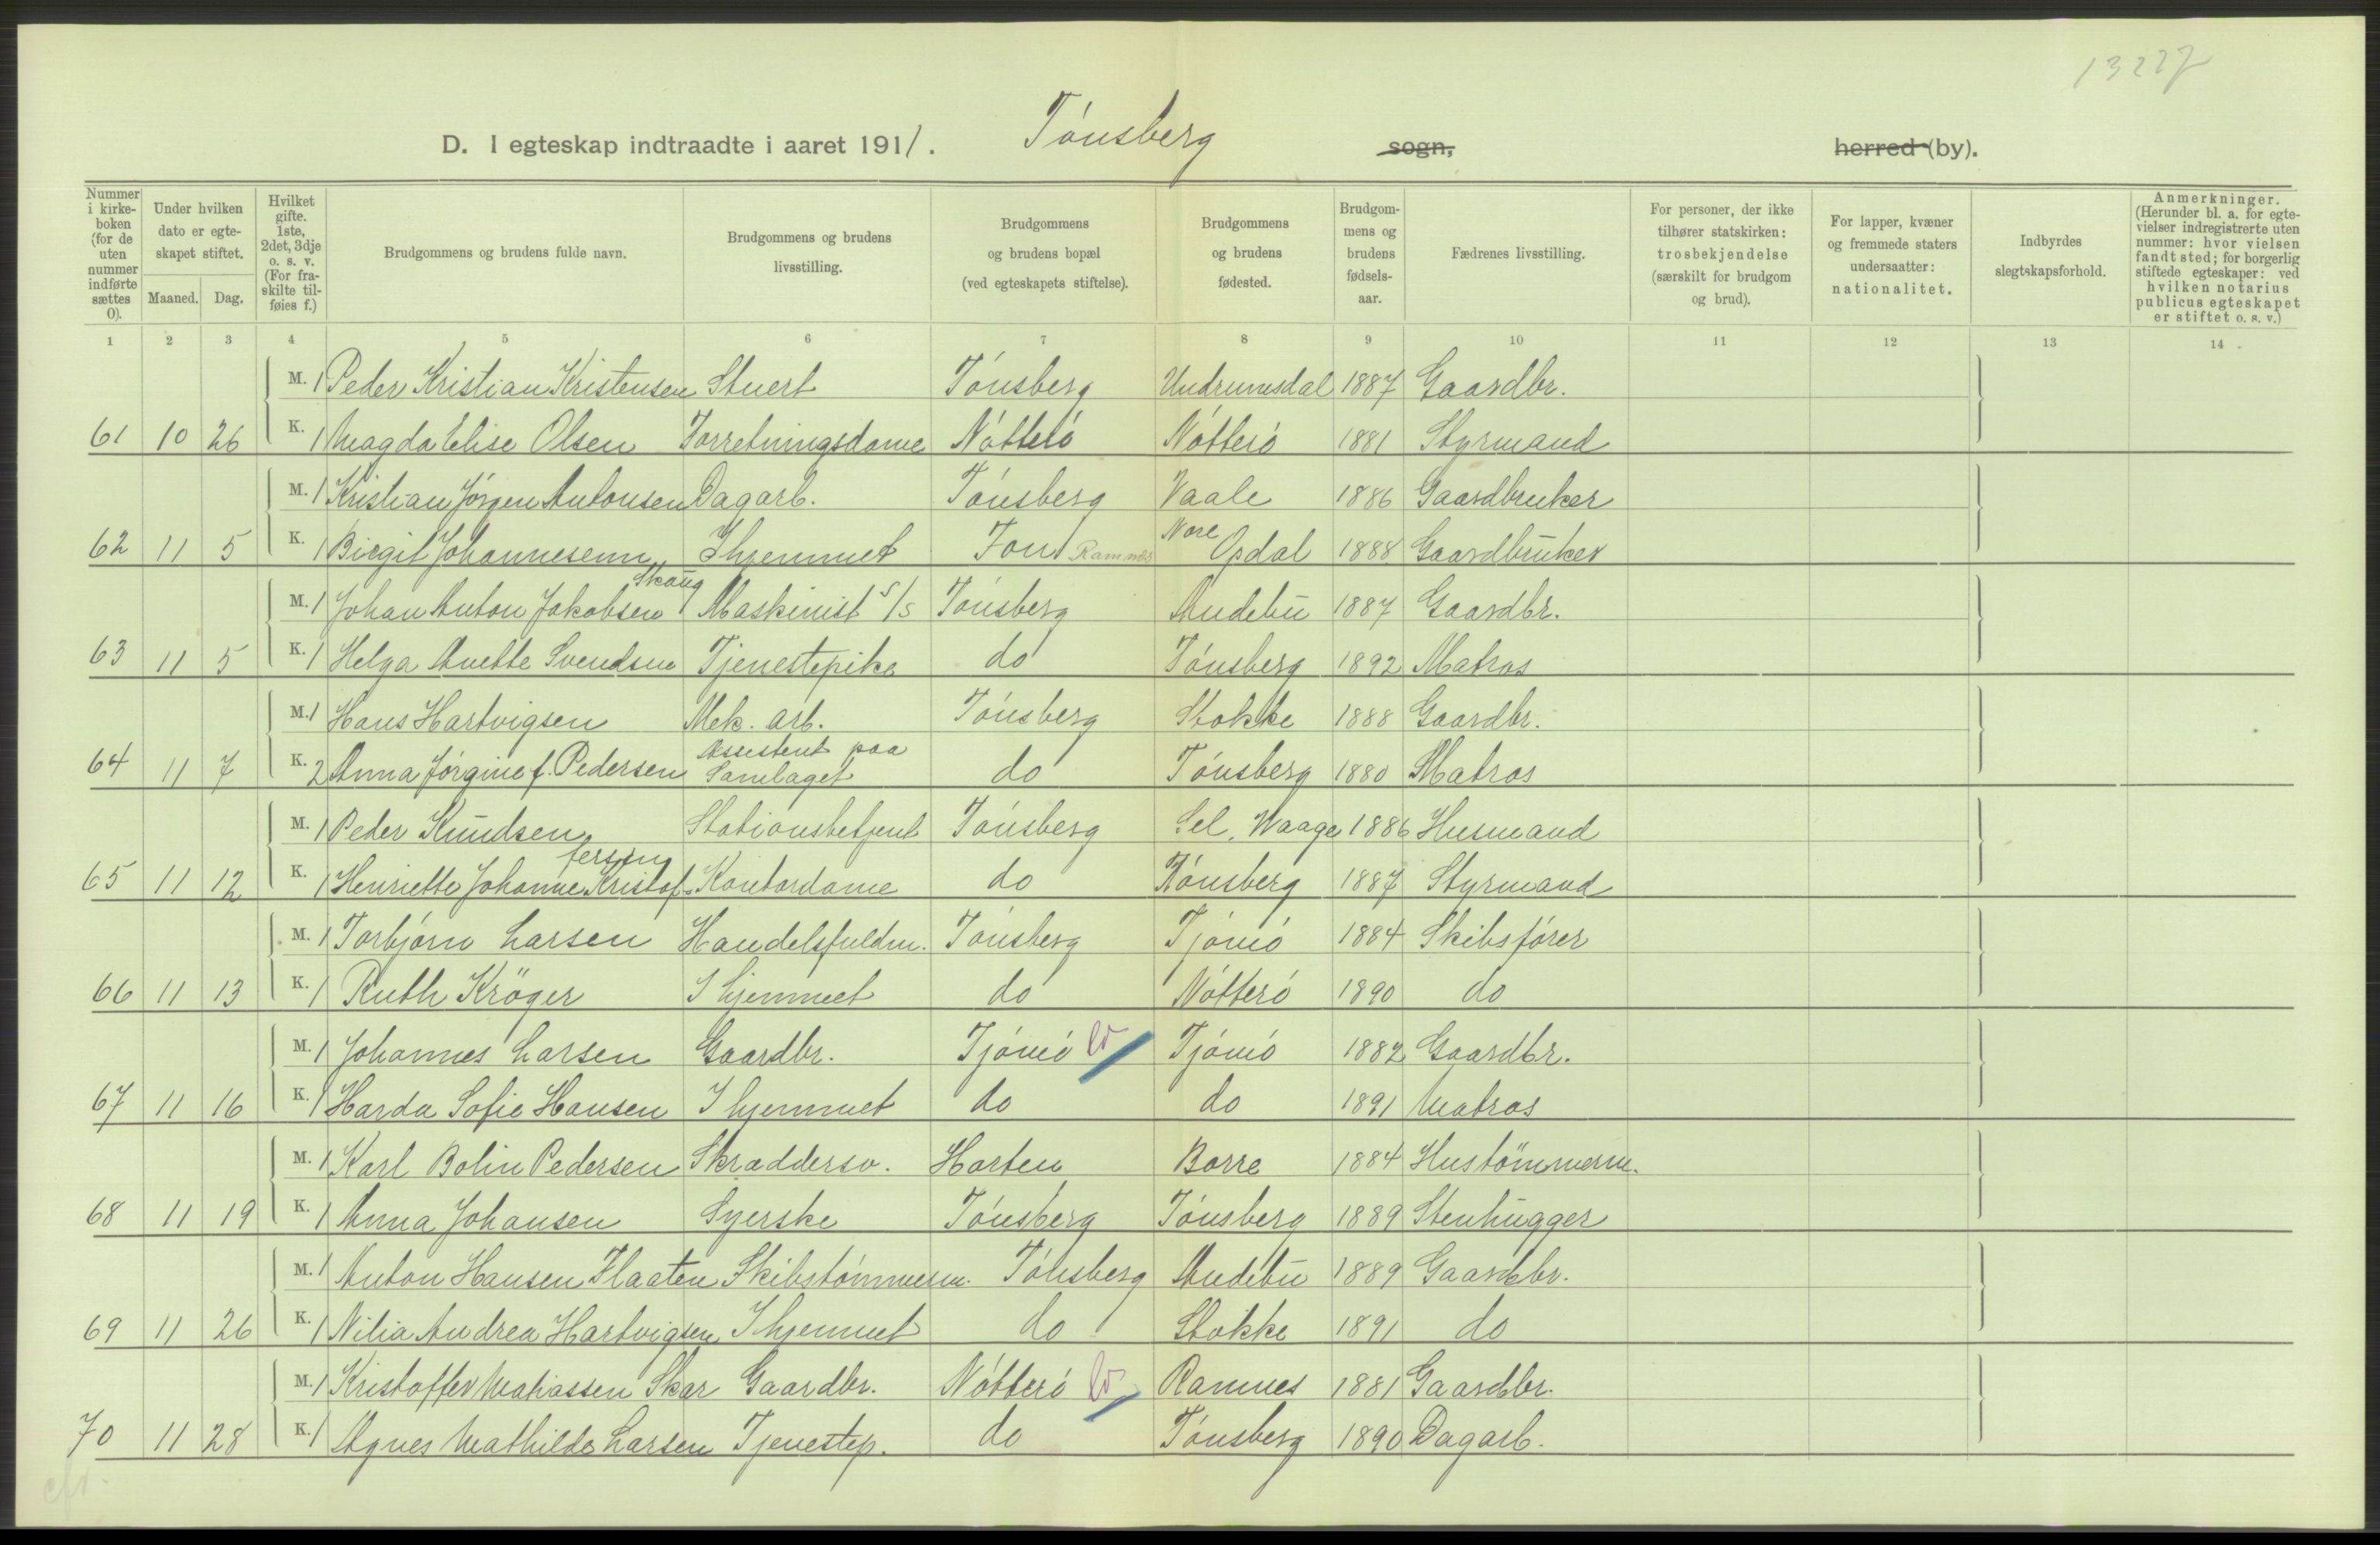 13227
D. I egteskap indtraadte i aaret 1911. Tönsberg sogn, herred (by).
Nummer i kirkeboken (for de uten nummer indførte sættes 0).
Under hvilken dato er egteskapet stiftet.
Maaned. Dag.
Hvilket gifte. 1ste, 2det, 3dje o. s. v. (For fraskilte tilføies f.)
Brudgommens og brudens fulde navn.
Brudgommens og brudens livsstilling.
Brudgommens og brudens bopæl (ved egteskapets stiftelse).
Brudgommens og brudens fødested.
Brudgommens og brudens fødselsaar.
Fædrenes livsstilling.
For personer, der ikke tilhører statskirken: trosbekjendelse (særskilt for brudgom og brud).
For lapper, kvæner og fremmede staters undersaatter: nationalitet.
Indbyrdes slegtskapsforhold.
Anmerkninger. (Herunder bl. a. for egtevielser indregistrerte uten nummer: hvor vielsen fandt sted; for borgerlig stiftede egteskaper: ved hvilken notarius publicus egteskapet er stiftet o. s. v.)
1 2 3 4 5 6 7 8 9 10 11 12 13 14
M. 1 Peder Kristian Kristensen Stuert Tönsberg Undrumsdal 1887 Gaardbr.
61 10 26 K. 1 Magda Elise Olsen Forretningsdame Nötterö Nötterö 1881 Styrmand
M. 1 Kristian Jörgen Antonsen Dagarb. Tönsberg Vaale 1886 Gaardbruker
62 11 5 K. 1 Birgit Johannesenn I hjemmet Fon Ramnes Nore Opdal 1888 Gaardbruker
M. 1 Johan Anton Jakobsen Skaug Maskinist S/S Tönsberg Andebu 1887 Gaardbr.
63 11 5 K. 1 Helga Anette Svendsen Tjenestepike do Tönsberg 1892 Matros
M. 1 Hans Hartvigsen Mek. arb. Tönsberg Stokke 1888 Gaardbr.
64 11 7 K. 2 Anna Jörgine f. Pedersen Assistent paa Samlaget do Tönsberg 1880 Matros
M. 1 Peder Knudsen Stationsbetjent Tönsberg Sel, Waage 1886 Husmand
65 11 12 K. 1 Henriette Johanne Kristoffersen Kontordame do Tönsberg 1887 Styrmand
M. 1 Torbjörn Larsen Handelsfuldm. Tönsberg Tjömö 1884 Skibsförer
66 11 13 K. 1 Ruth Kröger I hjemmet do Nötterö 1890 do
M. 1 Johannes Larsen Gaardbr. Tjömö Tjömö 1882 Gaardbr.
67 11 16 K. 1 Harda Sofie Hansen I hjemmet do do 1891 Matros
M. 1 Karl Bolin Pedersen Skræddersv. Horten Borre 1884 Hustömmerm.
68 11 19 K. 1 Anna Johansen Syerske Tönsberg Tönsberg 1889 Stenhugger
M. 1 Anton Hansen Flaaten Skibstömmerm. Tönsberg Andebu 1889 Gaardbr.
69 11 26 K. 1 Nilia Andrea Hartvigsen I hjemmet do Stokke 1891 do
M. 1 Kristoffer Matiassen Skar Gaardbr. Nötterö Ramnes 1881 Gaardbr.
70 11 28 K. 1 Agnes Mathilde Larsen Tjenestep. do Tönsberg 1890 Dagarb.